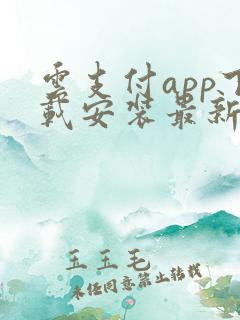 云支付app下
载安装最新
玉玉毛
未经同意禁止转载